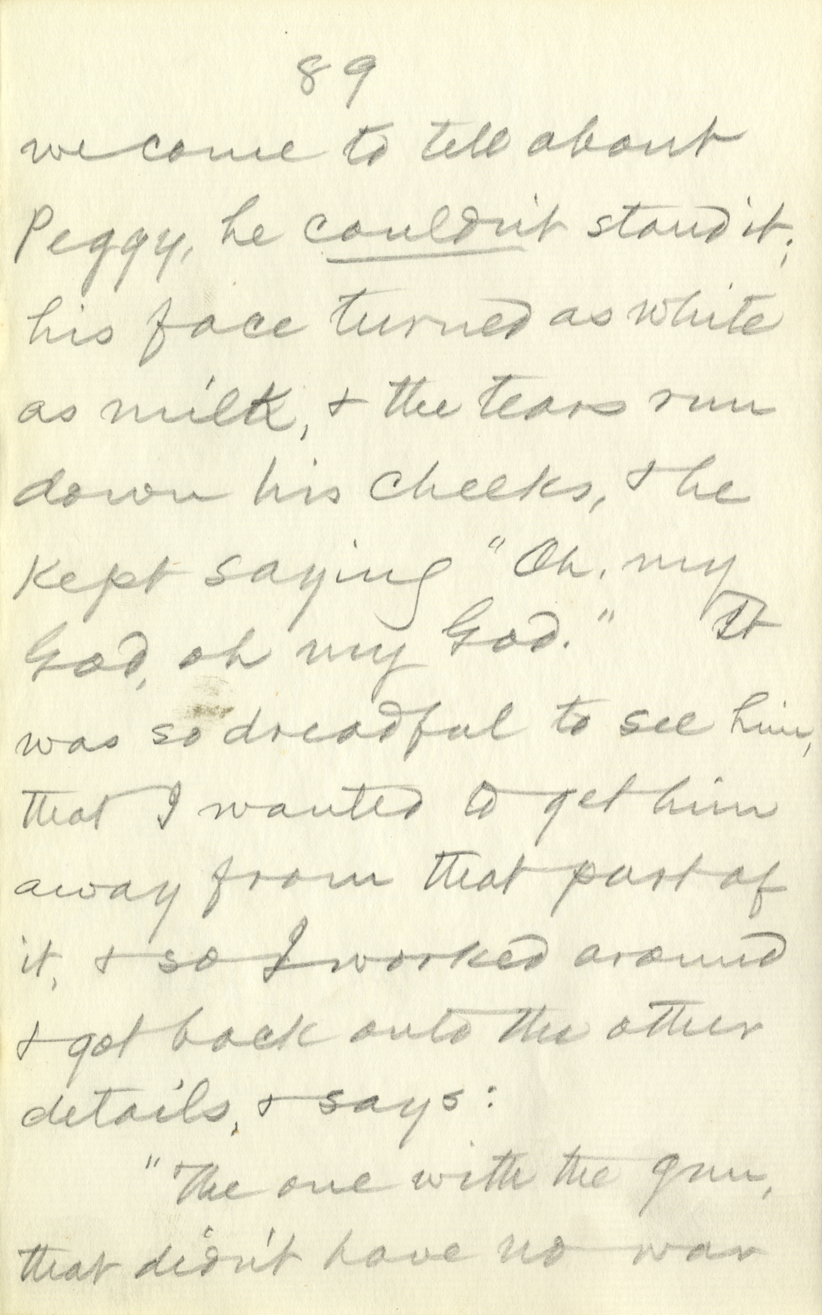 89
we come to tell about
Peggy, he couldn't stand it;
his face turned as white
as milk, & the tears run
down his cheeks, & he
kept saying "Oh, my
God, oh my God." It
was so dreadful to see him,
that I wanted to get him
away from that part of
it, & so I worked around
& got back onto the other
details, & says:
"The one with the gun,
that didn't have no war